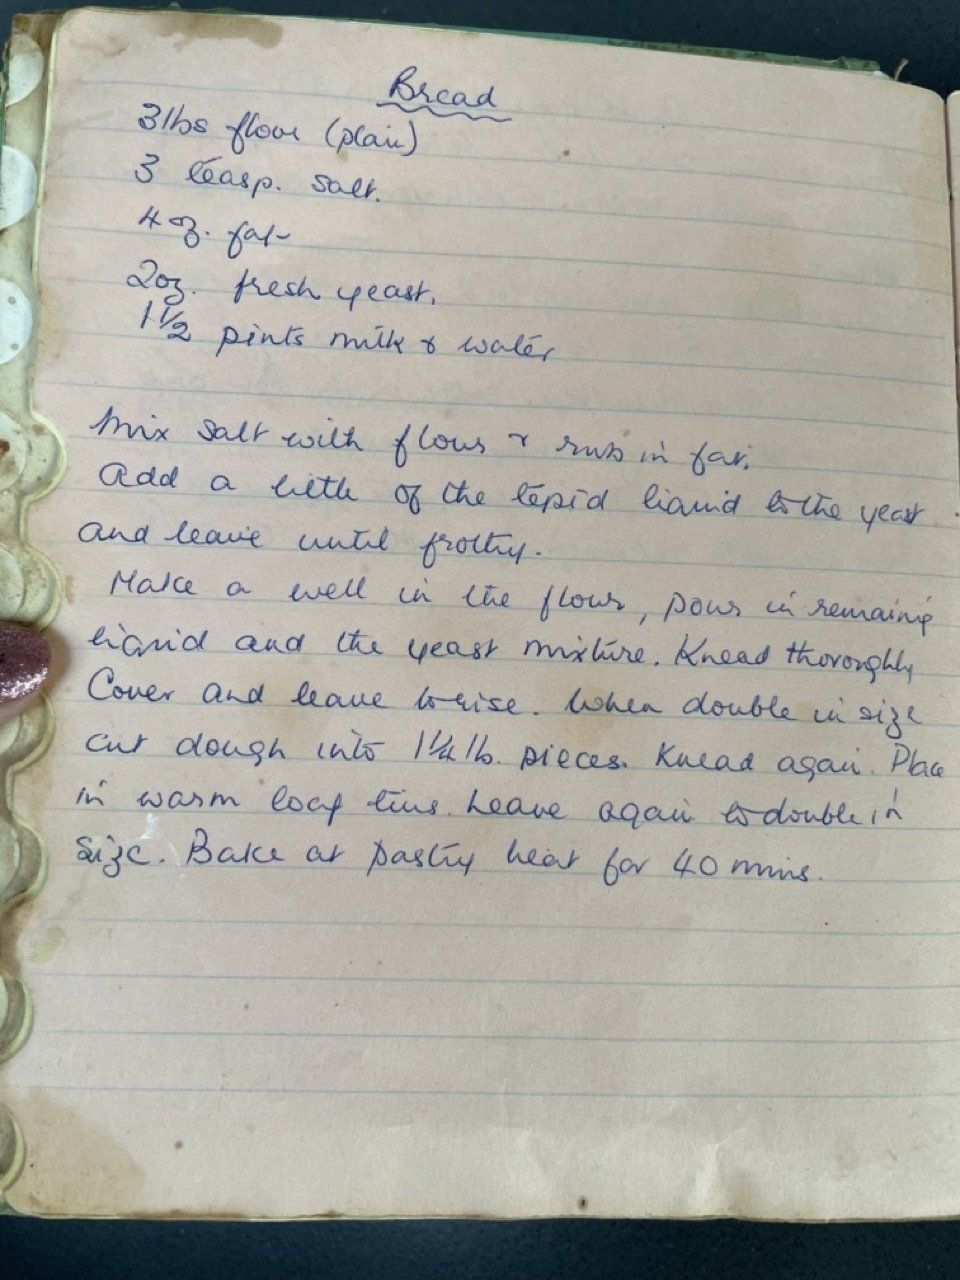 Bread
3 lbs flour (plain)
3 teasp. salt.
4 oz. fat
2oz. fresh yeast.
1 1/2 pints milk & water
Mix salt with flour & rub in fat.
Add a little of the tepid liquid to the yeast
and leave until frothy.
Make a well in the flour, pour in remaining
liquid and the yeast mixture. Knead thoroughly
Cover and leave to rise. When double in size
cut dough into 1 1/4 lb. pieces. Knead again. Place
in warm loaf tins. Leave again to double in
size. Bake at pastry heat for 40 mins.